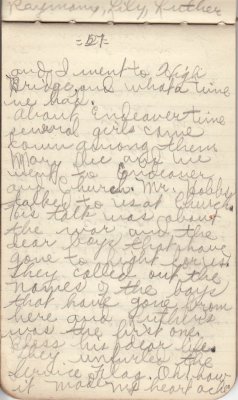 Raymond, Lily, Luther
= 57 =
and I went to High
Bridge and what a time
we had.
About Endeavor time
several girls came
down among them
Mary and we
went to Endeavor
and Church. Mr. Hobbs
talked to us at Church
his talk was about
the war and the
dear boys that have
gone to fight for us.
They called out the
names of the boys
that have gone from
here and Luther's
was the first one.
Bless his dear life.
They unfurled the
Service Flag. Oh how
it made my heart ache